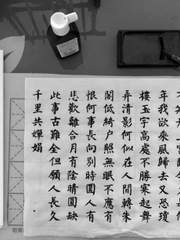 年我欲乘風歸去又恐瓊
樓玉宇高處不勝寒起舞
弄清影何似在人間轉朱
閣低綺戶照無眠不應有
恨何事長向別時圓人有
悲歡離合月有陰晴圓缺
此事古難全但願人長久
千里共嬋娟